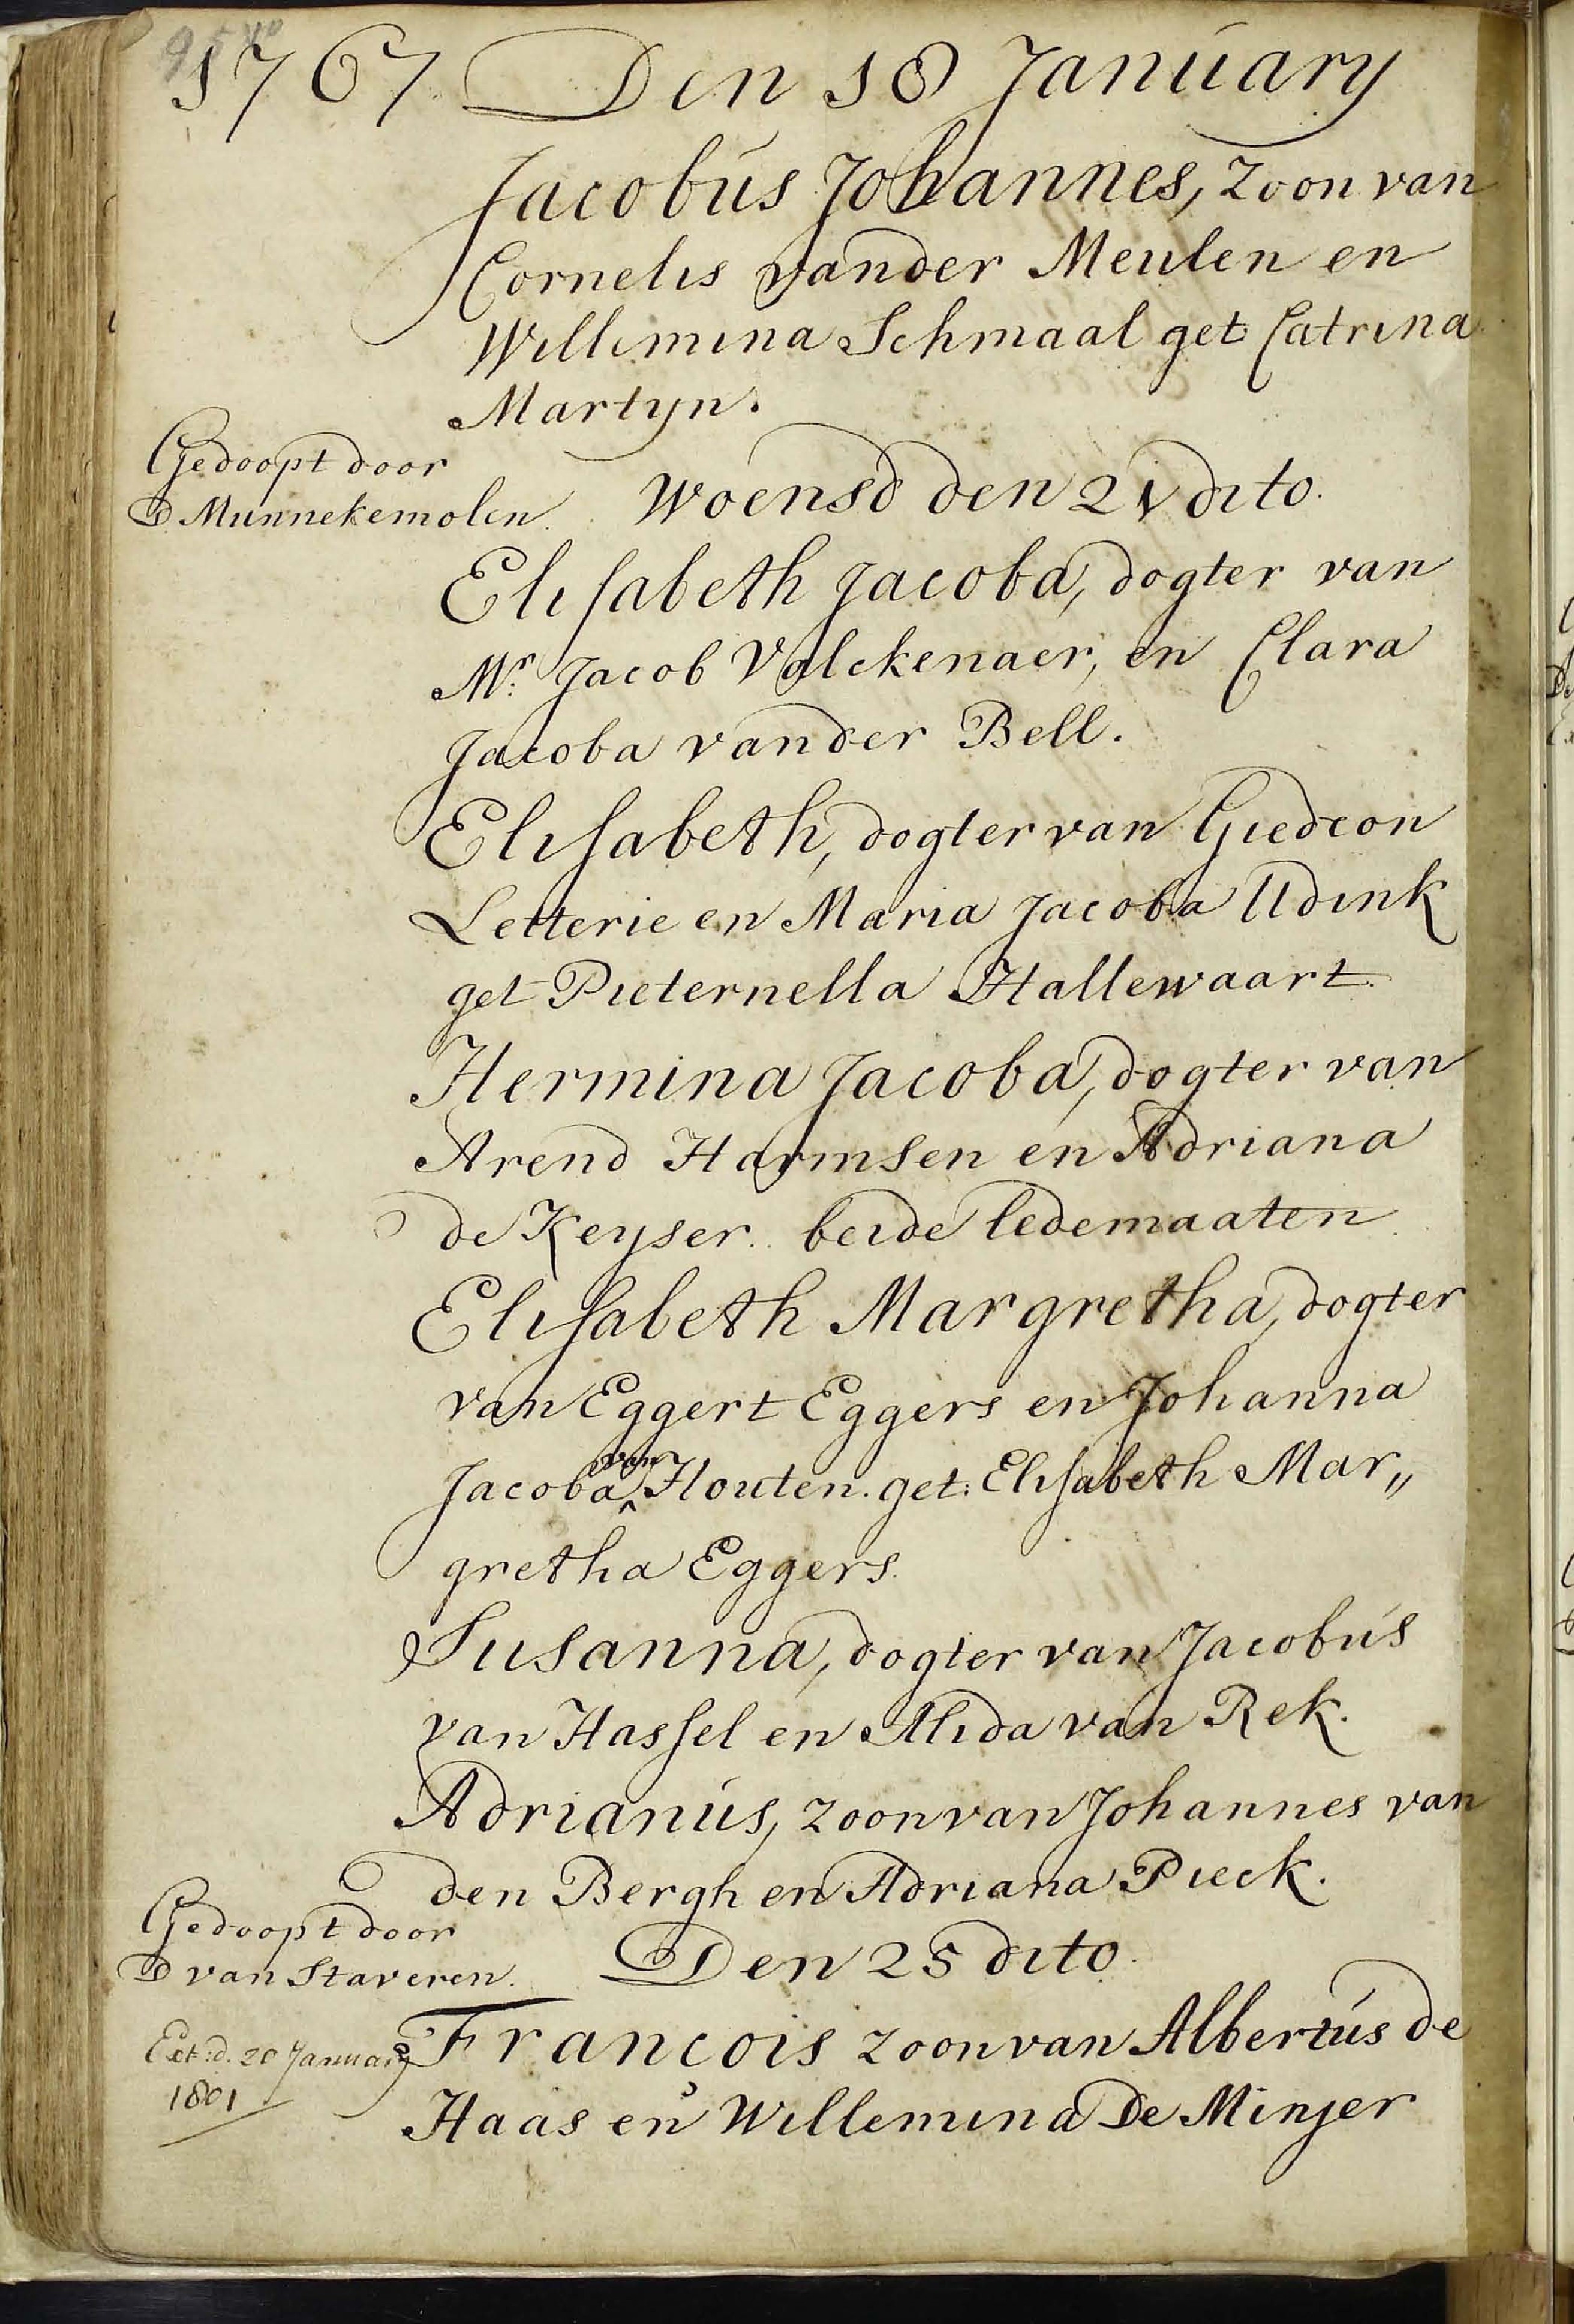 1767 Den 18 January
Jacobus Johannes, zoon van
Cornelis vander Meulen en
Willimina Schmaal get Catrina
Martyn.
Gedoopt door
D Munnekemolen.
Woensd den 21 dito.
Elisabeth Jacoba, dogter van
Mr. Jacob Valckenaer, en Clara
Jacoba vander Bell.
Elisabeth, dogter van Giedeon
Letterie en Maria Jacoba Udink
get Pieternella Hallewaart.
Hermina Jacoba, dogter van
Arend Harmsen en Adriana
de Keyser. beide ledemaaten
Elisabeth Margretha, dogter
van Eggert Eggers en Johanna
Jacoba van Houten. get: Elisabeth Mar„
gretha Eggers.
Susanna, dogter van Jacobus
van Hassel en Alida van Rek.
Adrianus, zoon van Johannes van
den Bergh en Adriana Pieck.
Gedoopt door
D van Staveren.
Den 25 dito.
Ext: d. 20 January
1801
François zoon van Albertus de
Haas en Willemina De Minjer